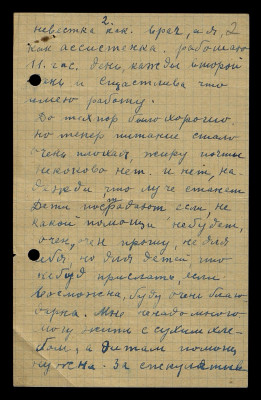 2.
невестка как. врач, а я, 2
как ассистенка. работаю
11. час. день, кажды второй
день и счастлива что
имею работу.
До тех пор было хорошо,
но тепер питание стало
очень плохая, жиру почти
никаково нет. и нет, на-
дежди, что луче станет
Дети пострадают, если не
какой помощи небудет,
очен, очен прошу, не для
себя, но для детей што
небудь прислать, если
возможна. буду очень благо
дарна. Мне ненадо много
могу жить с сухим хле-
бом, а дитам помощ
нужна. За